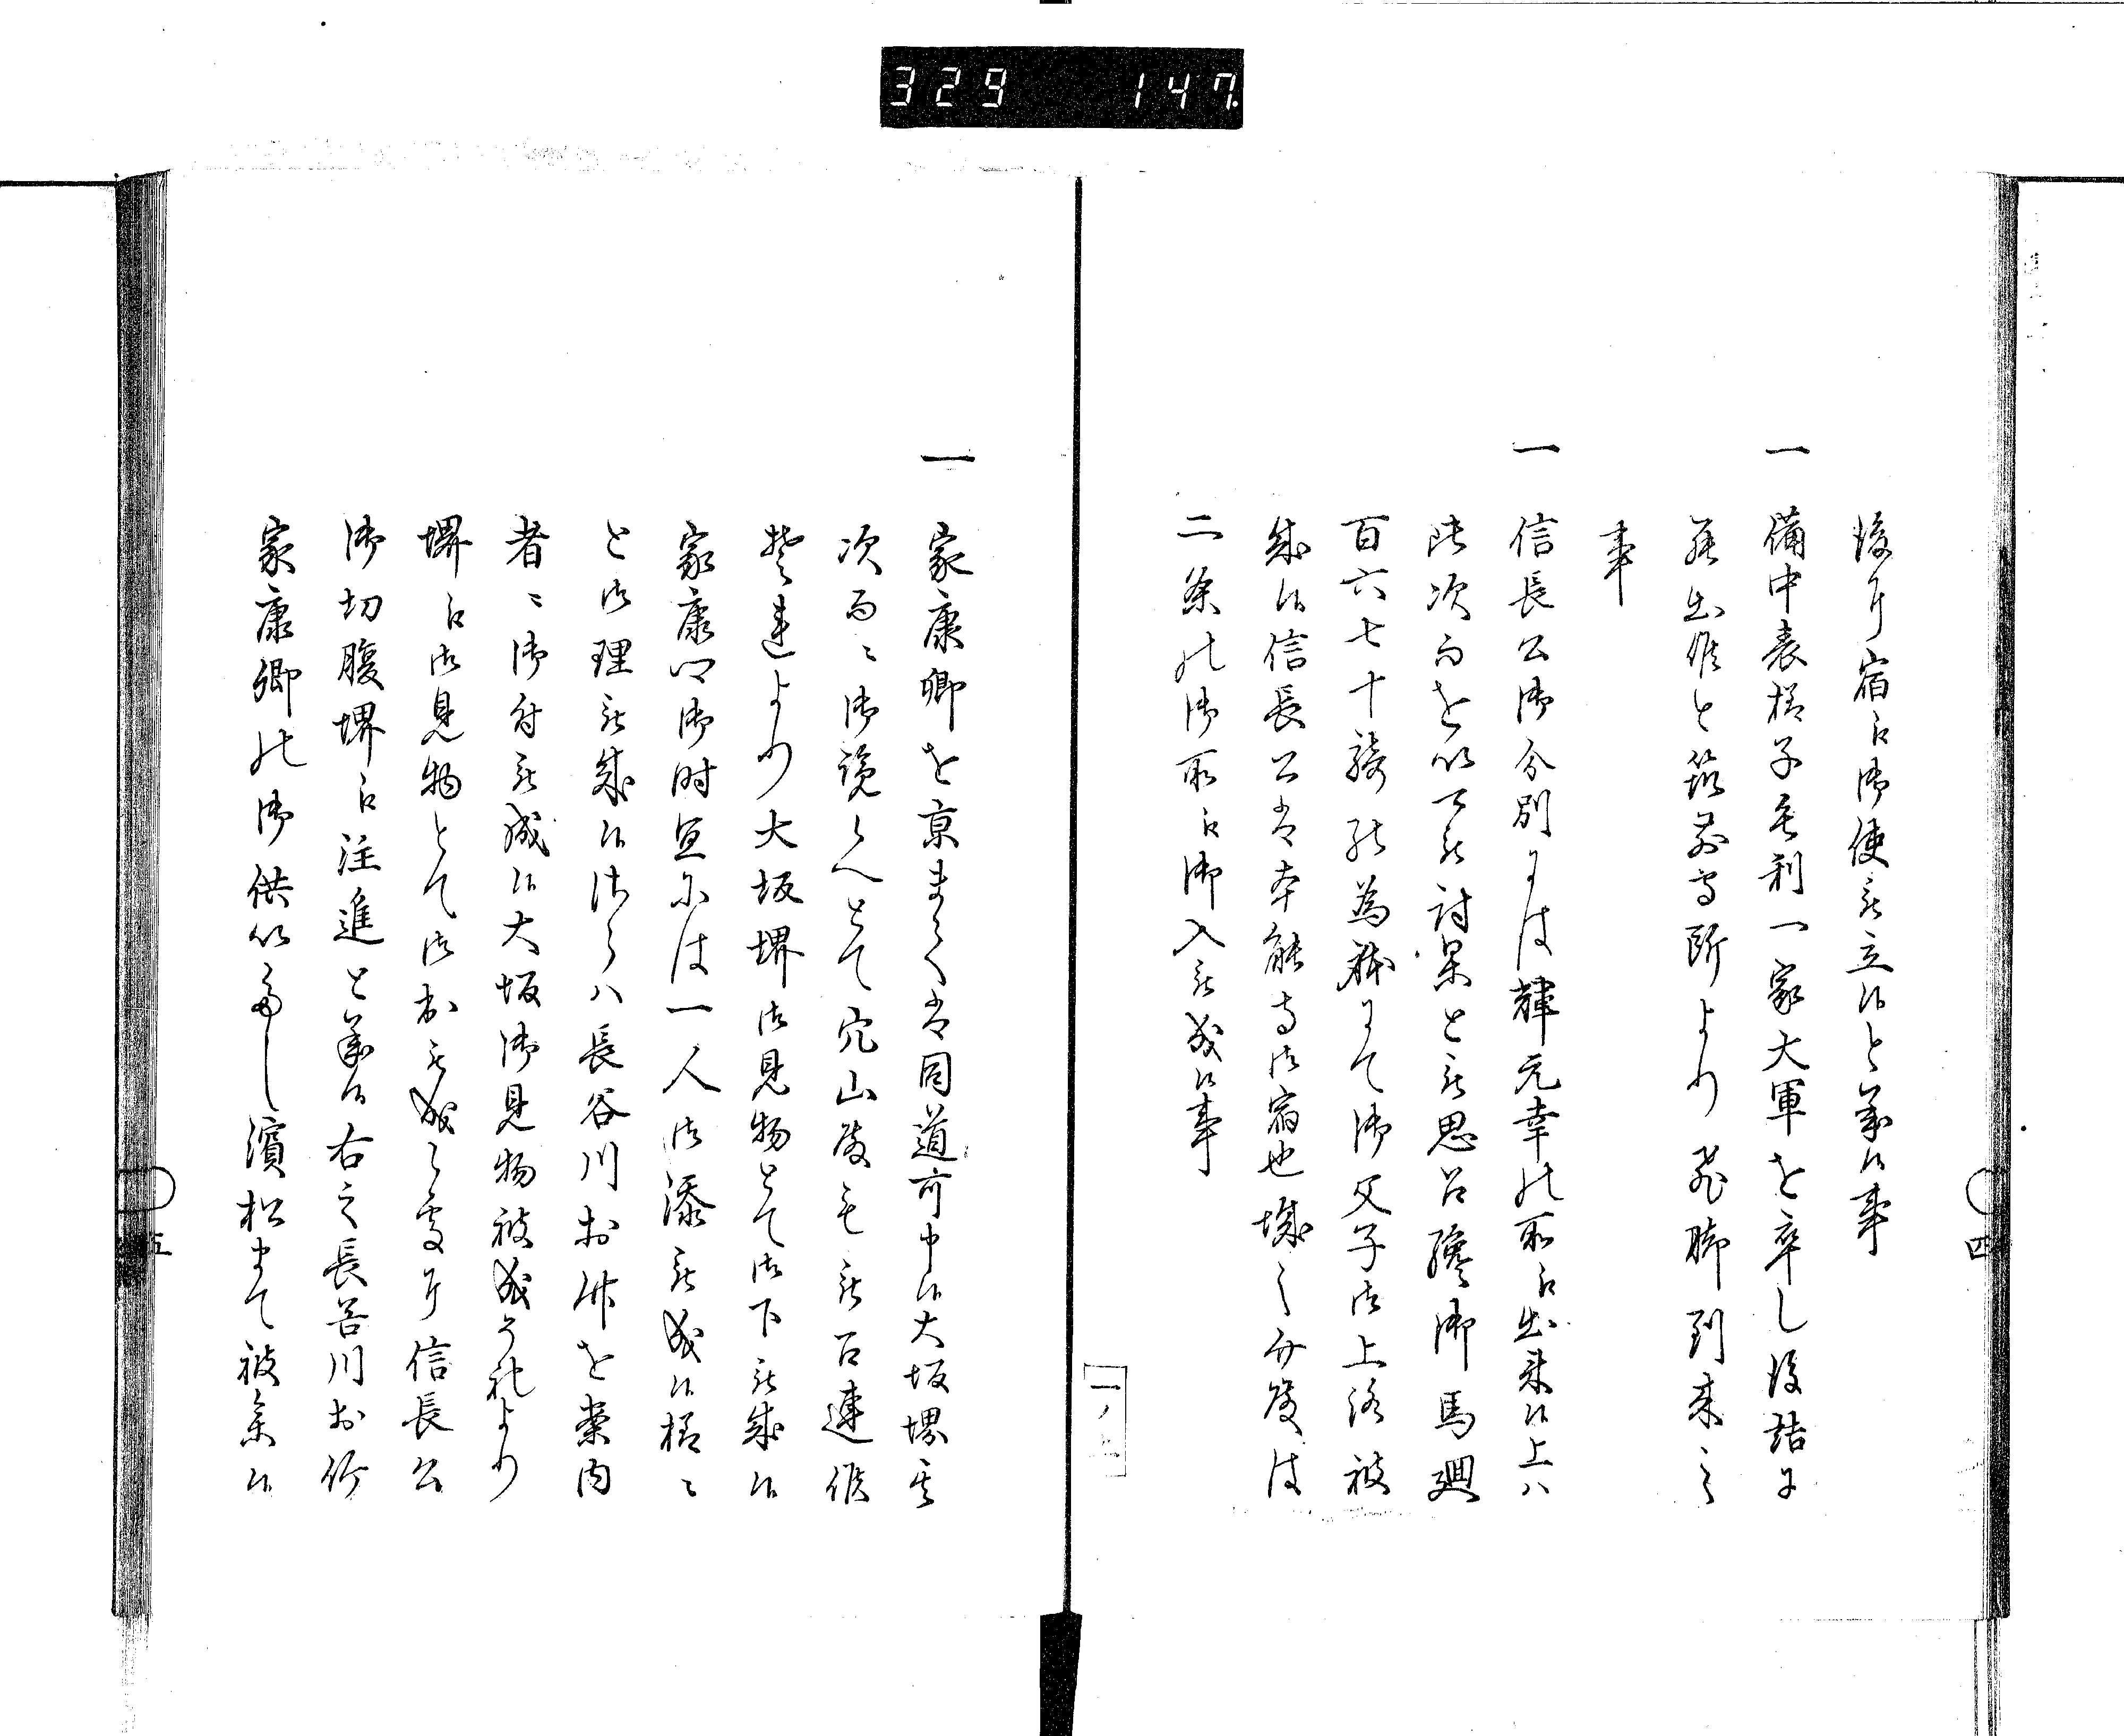 329 147.
後ニ宿へ御使被立候と承候事
一 備中表様子毛利一家大軍を卒し後詰ニ
罷出候と筑前守所より飛脚到来之
事
一 信長公御分別には輝元幸此所へ出来候上ハ
此次而を以可被討果と被思召纔御馬廻
百六七十騎の為躰にて御父子御上洛被
成候信長公は本能寺御宿也城之介殿は
二条の御所へ御入被成候事
一 家康卿を京まては同道可申候大坂堺
次而ニ御覧候へとて穴山殿も被召連候
大坂堺御見物とて御下被成候
家康公御時宜には一人御添被成候様ニ
と御理被成候つれハ長谷川お竹を案内
者ニ御付被成候大坂御見物被成それより
堺へ御見物とて御出被成候処ニ信長公
御切腹堺へ注進と承候右之長谷川お竹
家康卿の御供いたし濱松まて被参候
四
五